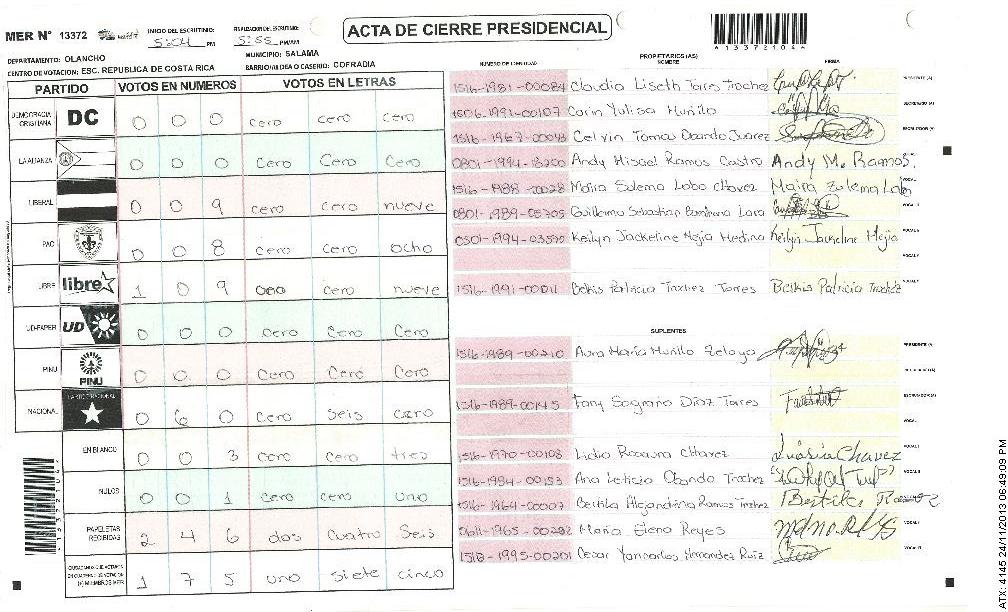 MER N° 13372
INICIO DEL ESCRUTINIO: 5:04 PM
FINALIZACION DEL ESCRUTINIO: 5:55 PM/AM
ACTA DE CIERRE PRESIDENCIAL
DEPARTAMENTO: OLANCHO
MUNICIPIO: SALAMA
CENTRO DE VOTACION: ESC. REPUBLICA DE COSTA RICA
BARRIO/ALDEA O CASERIO: COFRADIA
PARTIDO VOTOS EN NUMEROS VOTOS EN LETRAS
DEMOCRACIA CRISTIANA DC 0 0 0 cero cero cero
LA ALIANZA 0 0 0 Cero Cero Cero
LIBERAL 0 0 9 cero cero nueve
PAC 0 0 8 cero cero ocho
LIBRE libre 1 0 9 cero nueve
UD-FAPER UD 0 0 0 cero Cero Cero
PINU PINU 0 0 0 Cero Cero Cero
NACIONAL PARTIDO NACIONAL 0 6 0 Cero seis cero
EN BLANCO 0 0 3 Cero Cero tres
NULOS 0 0 1 cero cero uno
PAPELETAS RECIBIDAS 2 4 6 dos cuatro Seis
1 7 5 uno siete cinco
NUMERO DE IDENTIDAD PROPIETARIOS (AS) NOMBRE FIRMA
1516-1981-00084 Claudia Liseth Torres Trochez PRESIDENTE (A)
Corin Yulisa Murillo SECRETARIO (A)
Celvin Tomas Obando Juarez ESCRUTADOR (A)
0801-1994-18200 Andy Misael Ramos Castro Andy M. Ramos.
1516-1988-00028 Maira Sulema Lobo chavez Maira Zulema Lobo
0801-1989-05705 Guillermo Sebastian Lara
0501-1994-03590 Keilyn Jackeline Mejia Medina Keilyn Jackeline Mejia
1516-1991-00011 Belkis Patricia Trochez Torres Belkis Patricia Trochez
SUPLENTES
1516-1989-00210 Aura Maria Murillo Zelaya PRESIDENTE (A)
1516-1989-00145 Fany Sagrario Diaz Torres ESCRUTADOR (A)
1516-1970-00108 Lidia Rosaura Chavez
1516-1984-00153 Ana Leticia Obando Trochez
1516-1964-00007 Bertila Alejandrina Ramos Trochez
0611-1965-00282 Maria Elena Reyes
1516-1995-00201 Cesar Yonnarlos Hernandez Ruiz
ATX: 4145 24/11/2013 06:49:09 PM